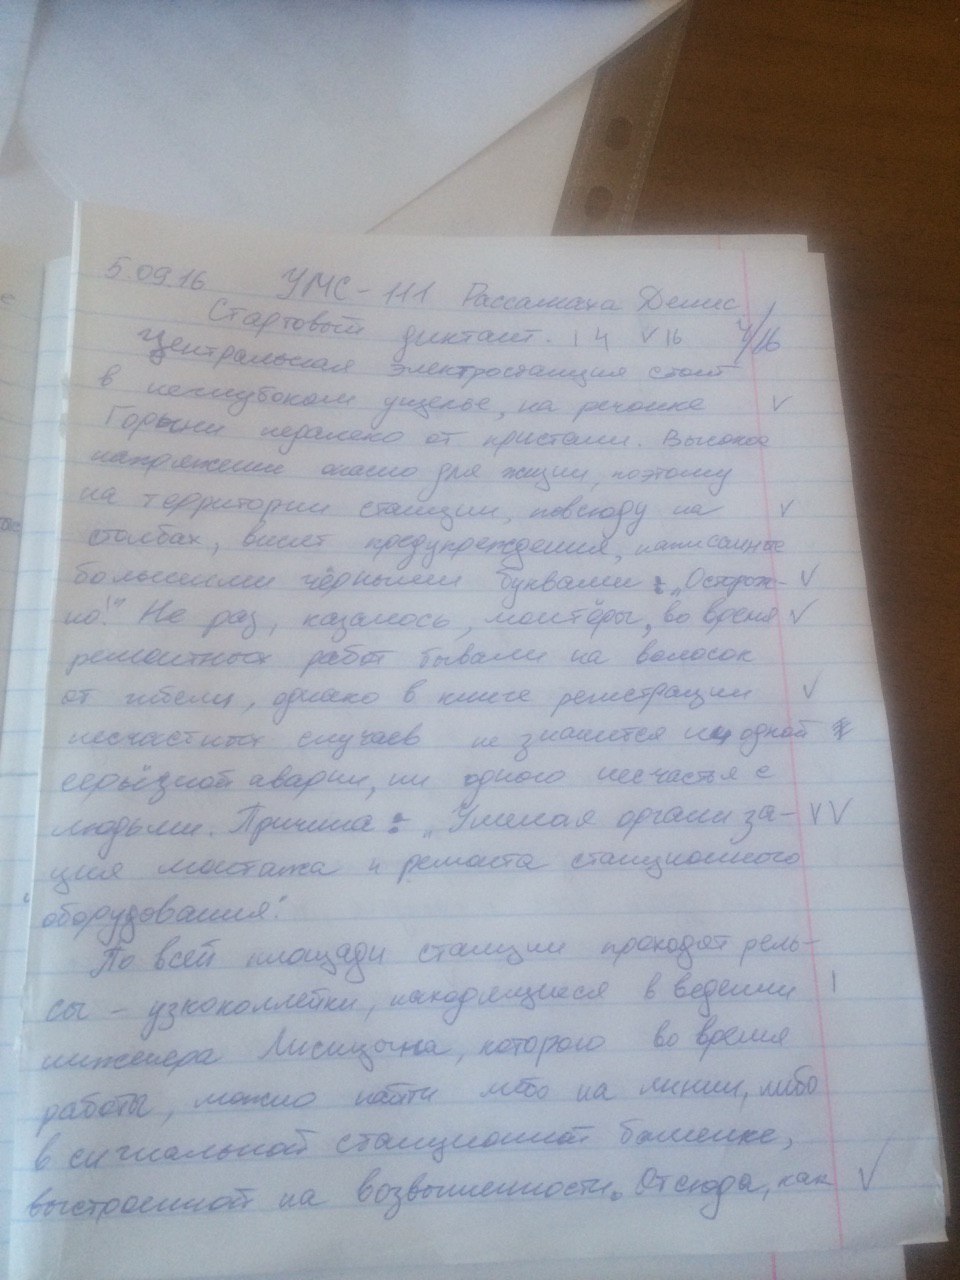 5.09.16 УМС-111 Рассамаха Денис
Стартовый диктант. | 4 V 16 4/16
Центральная электростанция стоит
в неглубоком ущелье, на речонке V
Горыни недалеко от пристани. Высокое
напряжение опасно для жизни, поэтому
на территории станции, повсюду на V
столбах, висят предупреждения, написанные
большими чёрными буквами: „Осторож- V
но!" Не раз, казалось, монтёры, во время V
ремонтных работ бывали на волосок
от гибели, однако в книге регистрации V
несчастных случаев не значится ни одной
серьёзной аварии, ни одного несчастья с
людьми. Причина: „Умелая организа- V V
ция монтажа и ремонта станционного
оборудования."
По всей площади станции проходят рель-
сы – узкоколлейки, находящиеся в ведении |
инженера Лисицына, которого во время
работы, можно найти либо на линии, либо
в сигнальной станционной башенке,
выстроенной на возвышенности. Отсюда, как V